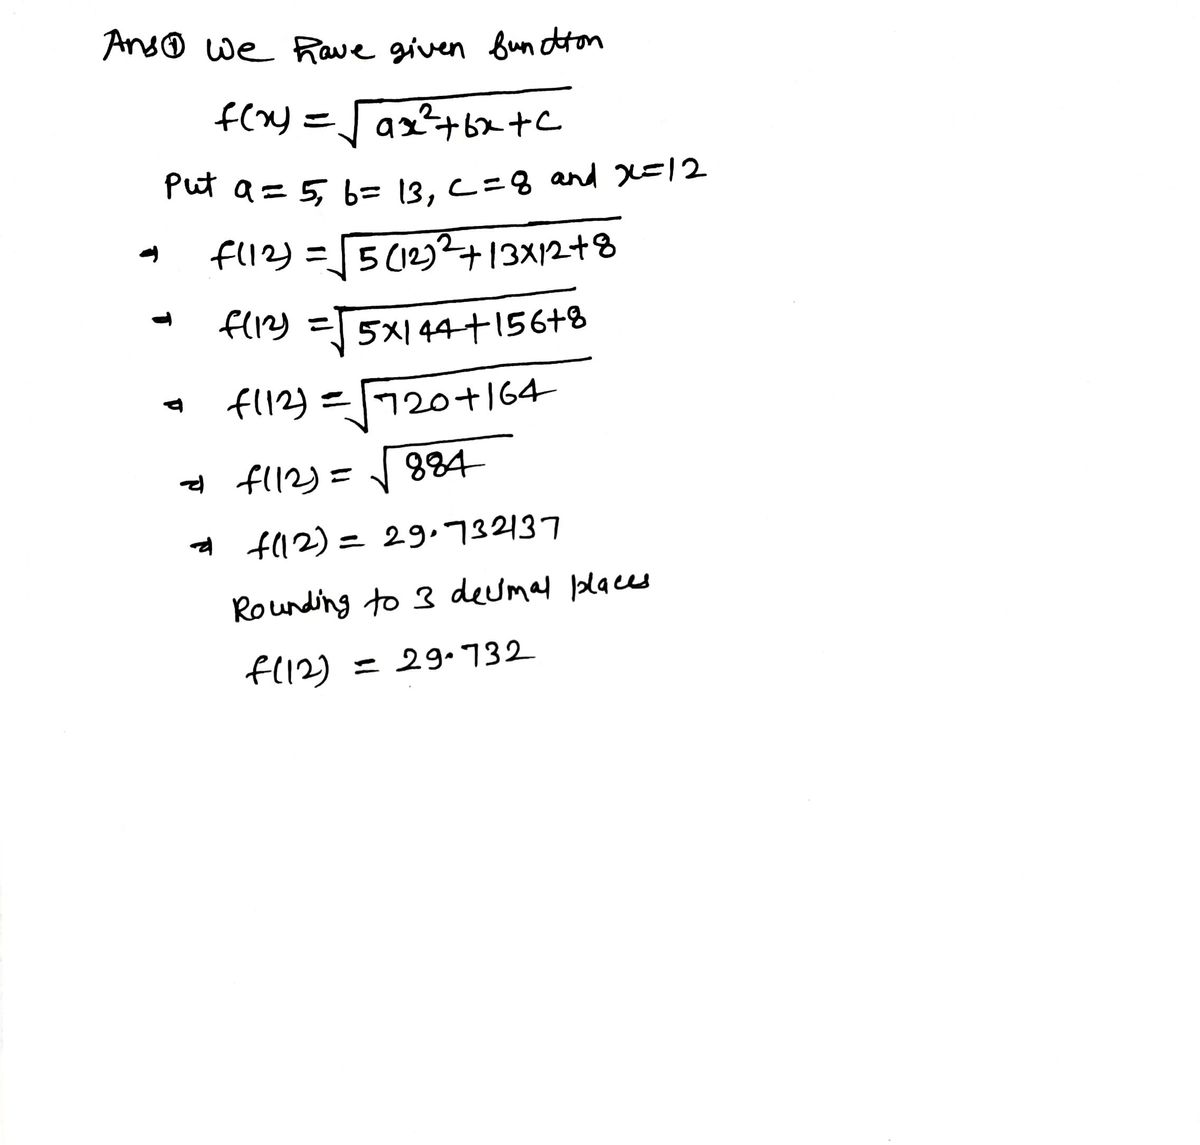 Ans① We have given function
f(x) = √ax²+bx+c
Put a = 5, b = 13, c = 8 and x=12
⇒ f(12) = √5(12)²+13×12+8
⇒ f(12) = √5×144+156+8
⇒ f(12) = √720+164
⇒ f(12) = √884
⇒ f(12) = 29.732137
Rounding to 3 decimal places
f(12) = 29.732